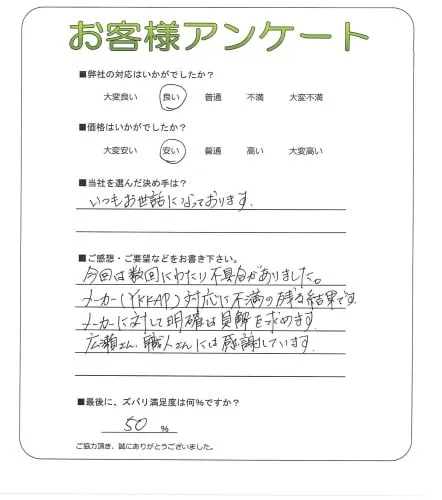 お客様アンケート
■弊社の対応はいかがでしたか?
大変良い 良い 普通 不満 大変不満
■価格はいかがでしたか?
大変安い 安い 普通 高い 大変高い
■当社を選んだ決め手は?
いつもお世話になっております.
■ご感想・ご要望などをお書き下さい。
今回は数回にわたり不具合がありました。
メーカー(YKKAP)対応に不満の残る結果です.
メーカーに対して明確な見解を求めます.
広瀬さん、職人さんには感謝しています.
■最後に、ズバリ満足度は何%ですか?
50 %
ご協力頂き、誠にありがとうございました。